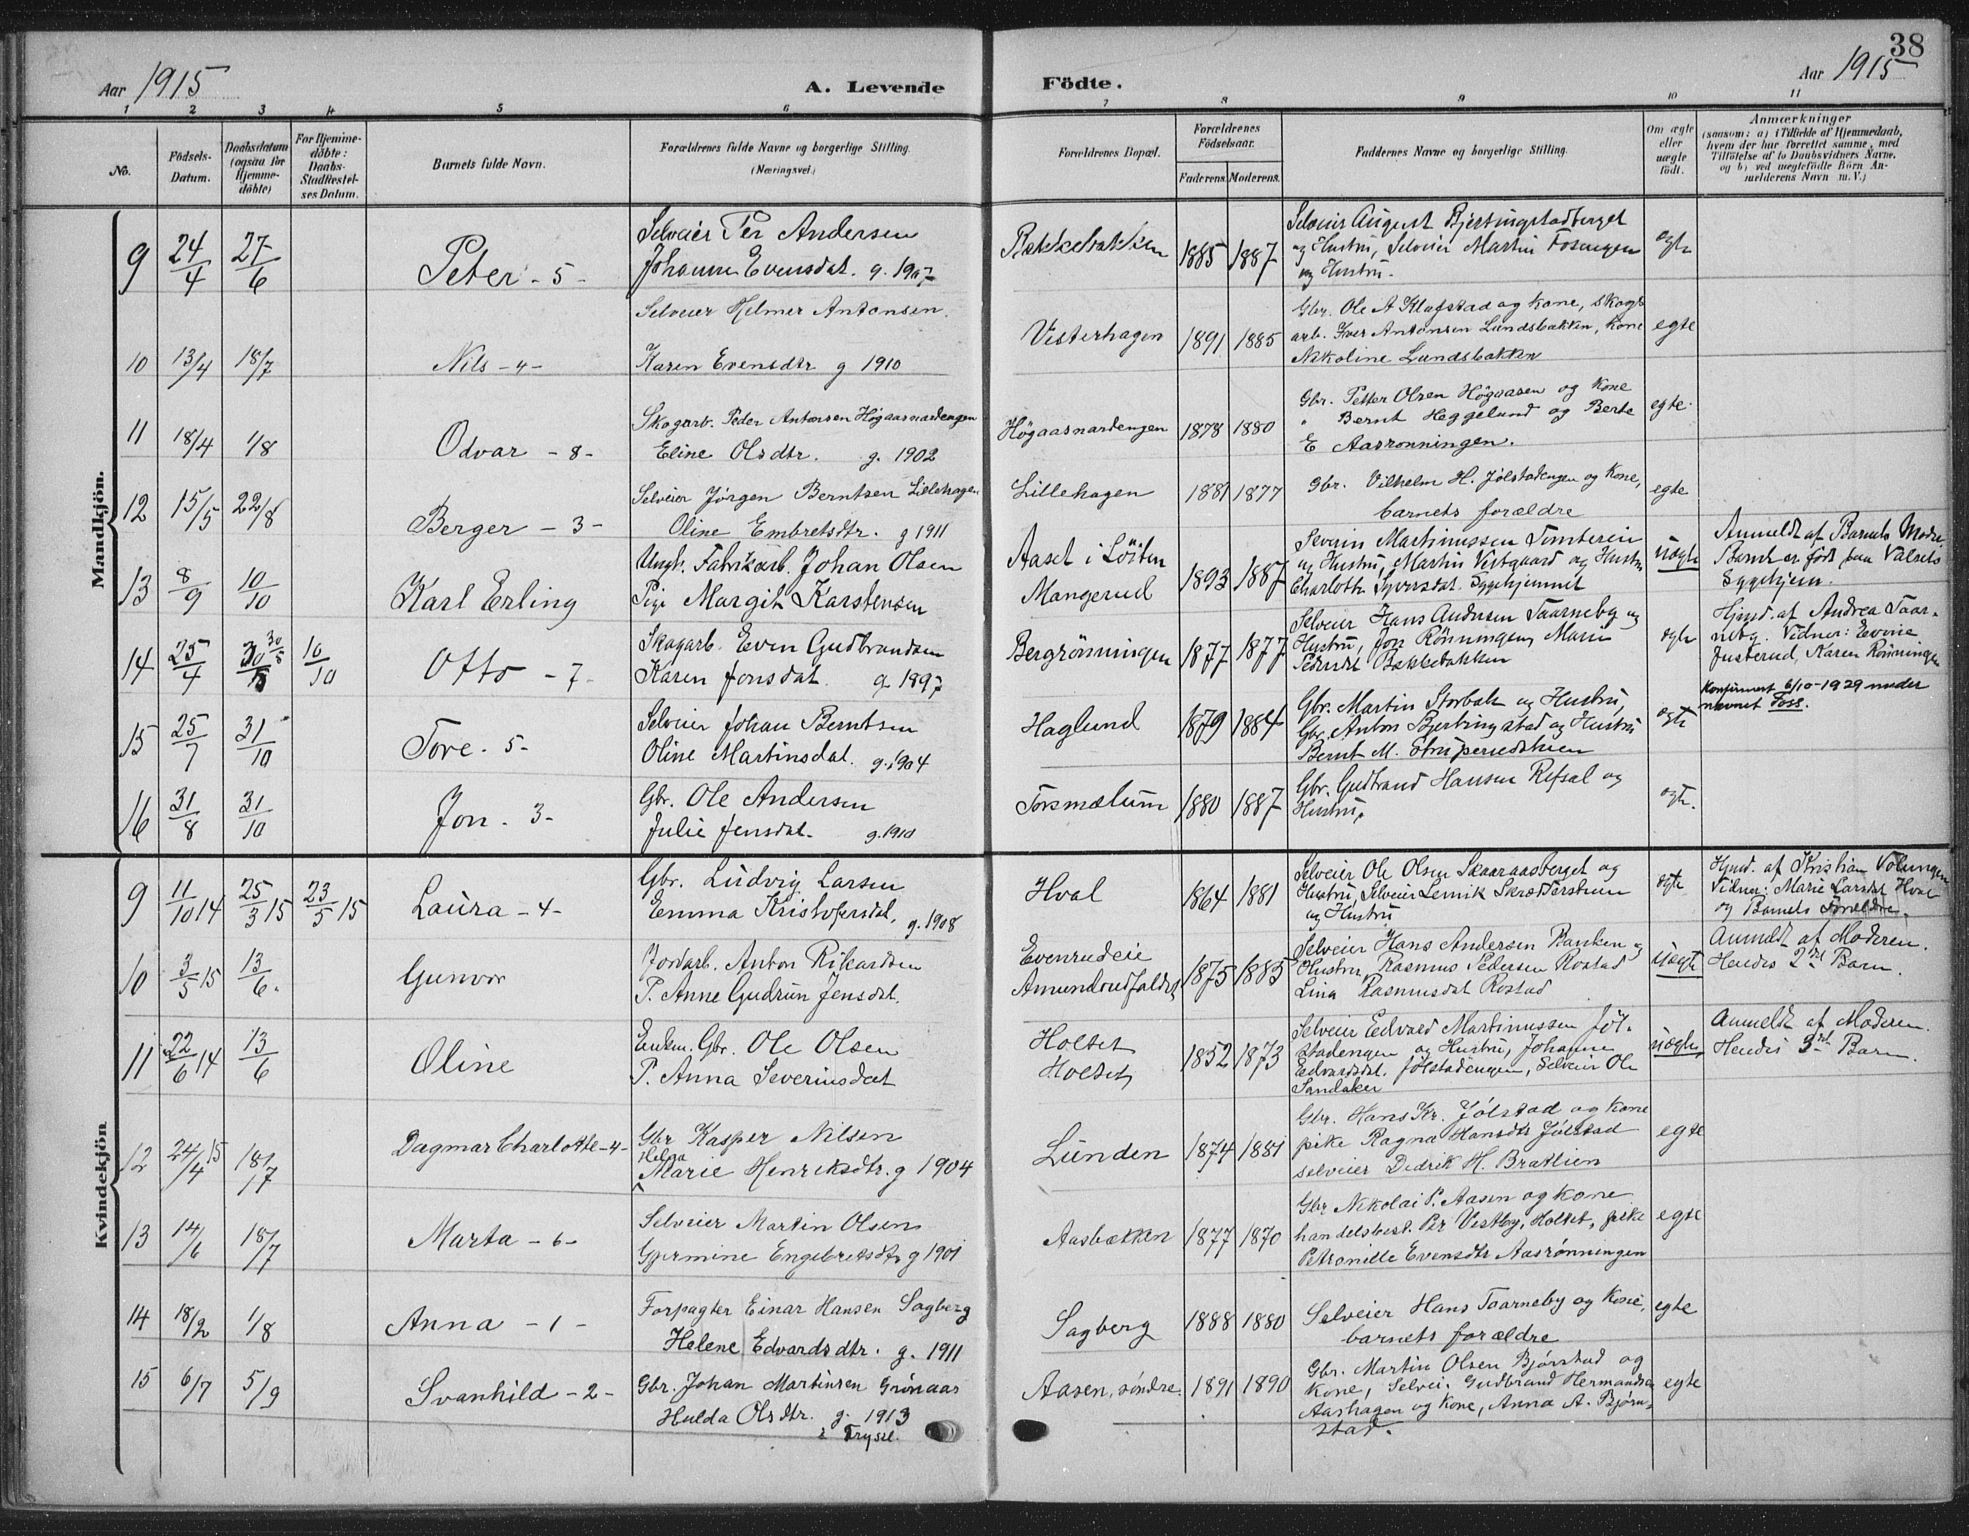 38
Aar 1915
A. Levende
Födte.
Aar 1915
1 2 3 4 5 6 7 8 9 10 11
No.
Födsels-
Datum.
Daabsdatum
(ogsaa for
Hjemme-
döbte)
For Hjemme-
döbte:
Daabs-
Stadfestel-
ses Datum.
Barnets fulde Navn.
Forældrenes fulde Navne og borgerlige Stilling.
(Næringsvei.)
Forældrenes Bopæl.
Forældrenes
Födselsaar.
Faderens. Moderens.
Faddernes Navne og borgerlige Stilling.
Om ægte
eller
uægte
födt.
Anmærkninger
(saasom: a) i Tilfælde af Hjemmedaab,
hvem der har forrettet samme, med
Tilföielse af to Daabsvidners Navne,
og b) ved uegtefödte Börn An-
melderens Navn m. V.)
Mandkjön.
9 24/4 27/6 Peter - 5 -
Selveier Per Andersen
Johanne Evensdat. g. 1907
Bakkebakken 1885 1887
Selveier August Bjertingstadberget
og Hustru, Selveier Martin Fosengen
og Hustru.
egte
10 13/4 18/7 Nils - 4 -
Selveier Helmer Antonsen.
Karen Evensdtr g 1910
Vesterhagen 1891 1885
Gbr. Ole A Klafstad og kone, skogs
arb. Iver Antonsen Lundsbakken, kone
Nikoline Lundsbakken
egte
11 18/4 1/8 Odvar - 8 -
Skogarb. Peder Antonsen Høgaasnardengen
Eline Olsdtr. g. 1902
Høgaasnardengen 1878 1880
Gbr. Petter Olsen Høgaasen og Kone
" Bernt Heggelund og Berte
E Aasrønningen.
egte.
12 15/5 22/8 Berger - 3 -
Selveier Jørgen Berntsen Lillehagen
Oline Embretsdtr. g 1911
Lillehagen 1881 1877
Gbr. Vilhelm H. Jølstadengen og Kone,
barnets forældre
egte
13 8/9 10/10 Karl Erling
Ungk. Fabrikarb. Johan Olsen
Pige Margit Karstensen
Aaset i Löiten
Mangerud
1893 1887
Severin Martinussen Tomterein
og Hustru, Martin Vestgaard og Hustru
Charlotte Syversdat. Eggehjemmet
uægte
Anmeldt af Barnets Moder
Barnet er født paa Valsets
Eggehjem.
14 25/4 30/5 30/5 10/10 Otto - 7 -
Skogarb. Even Gudbrandsen
Karen Jonsdat. g 1897
Bergrönningen 1877 1877
Selveier Hans Andersen Taarneby og
Hustru, Jon Rönningen, Maren
Pedersdt Bakkebakken
egte
Hjmd. af Andrea Taar-
neby. Vidner: Evine
Justerud, Karen Rönningen
Konfirmert 6/10-1929 under
navnet Foss.
15 25/7 31/10 Tore - 5 -
Selveier Johan Berntsen
Oline Martinsdat. g. 1904
Haglund 1879 1884
Gbr. Martin Storbak og Hustru,
Gbr. Anton Bjertingstad og Hustru
Bernt M.
egte
16 31/8 31/10 Jon - 3 -
Gbr. Ole Andersen
Julie Jensdat. g. 1910
Torsmælum 1880 1887
Gbr. Gudbrand Hansen Refsal og
Hustru.
egte.
Kvindekjön
9 11/10 14 25/3 15 23/5 15 Laura - 4 -
Gbr. Ludvig Larsen
Emma Kristofersdat. g. 1908
Hval 1864 1881
Selveier Ole Olsen Skaaraasberget og
Hustru, Selveier Lemik Skrædderstuen
og Hustru
egte
Hjmd. af Kristian Volungen
Vidner: Marie Larsdat Hval
og Barnets Forældre.
10 3/5 15 13/6. Gunvor
Jordarb. Anton Rikardsen
P. Anne Gudrun Jensdat.
Evenrudeie
Amundrudfaldet
1875 1885
Selveier Hans Andersen Banken og
Hustru, Rasmus Pedersen Rostad
Lina Rasmusdat Rostad
uægte
Anmeldt af Moderen.
Hendes 2det Barn.
11 22/6 14 13/6 Oline
Enkm. Gbr. Ole Olsen
P. Anna Severinsdat
Holset
Holset
1852 1873
Selveier Edvard Martinussen Jøl-
stadengen og Hustru, Johanne
Edvardsdat. Jølstadengen, Selveier Ole
Sandaker
uægte
Anmeldt af Moderen.
Hendes 3die Barn.
12 24/4 15 18/7 Dagmar Charlotte - 4 -
Gbr Kasper Nilsen
Helga
Marie Henriksdtr. g 1904
Lunden 1874 1881
Gbr. Hans Kr. Jølstad og kone
pike Ragna Hansdtr Jølstad
selveier Didrik H. Bratlien
egte
13 14/6 18/7 Marta - 6 -
Selveier Martin Olsen
Gjermine Engebretsdtr g 1901
Aasbækken 1877 1870
Gbr Nikolai P. Aasen og kone
handelsbest. Per Vestby, Holtet, pike
Petronille Evensdtr Aasrønningen
egte
14 18/2 1/8 Anna - 1 -
Forpagter Einar Hansen Sagberg
Helene Edvardsdtr. g. 1911
Sagberg 1888 1880
Selveier Hans Taarneby og Kone,
barnets forældre
egte
15 6/7 5/9 Svanhild - 2 -
Gbr. Johan Martinsen Grønaas
Hulda Olsdtr. g. 1913
i Trysil.
Aasen, søndre. 1891 1890
Gbr. Martin Olsen Bjørstad og
kone, Selvei. Gudbrand Hermandsen
Aashagen og Kone, Anna A. Bjørn-
stad.
egte